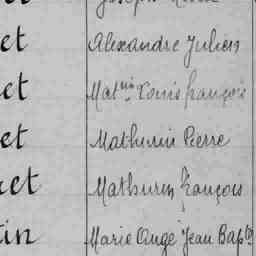 et Alexandre Julien
et Mat^in Louis françois
et Mathurin Pierre
et Mathurin françois
in Marie Ange Jean Bap^te